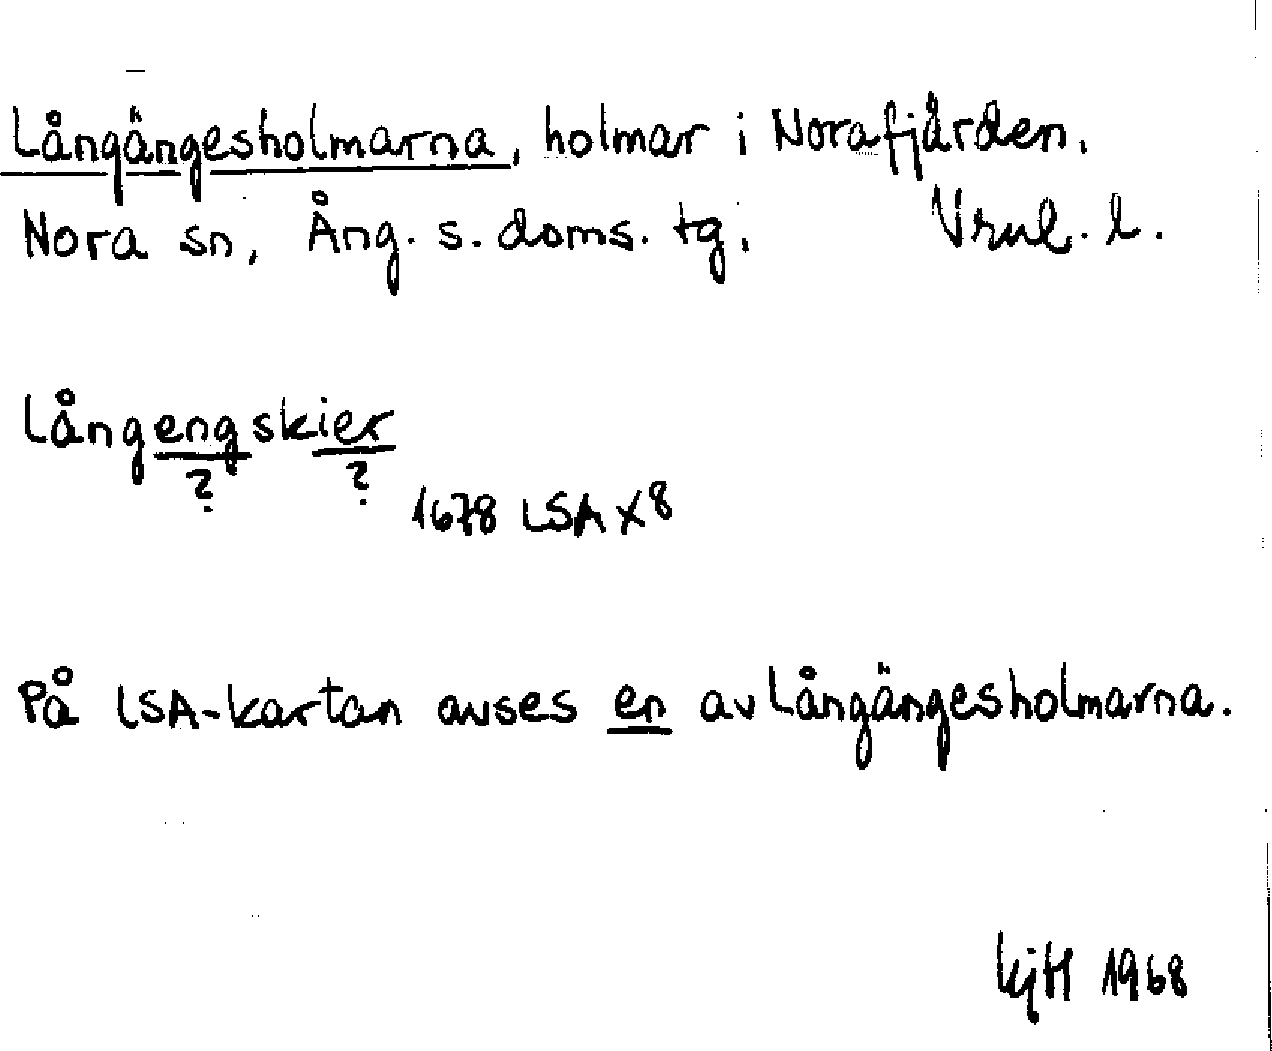 Långängesholmarna, holmar i Norafjärden.
Nora sn, Ång. s. doms. tg. Vrnl. l.
Långengskier
? ?
1678 LSA X8
På LSA-kartan avses en av Långängesholmarna.
KjH 1968